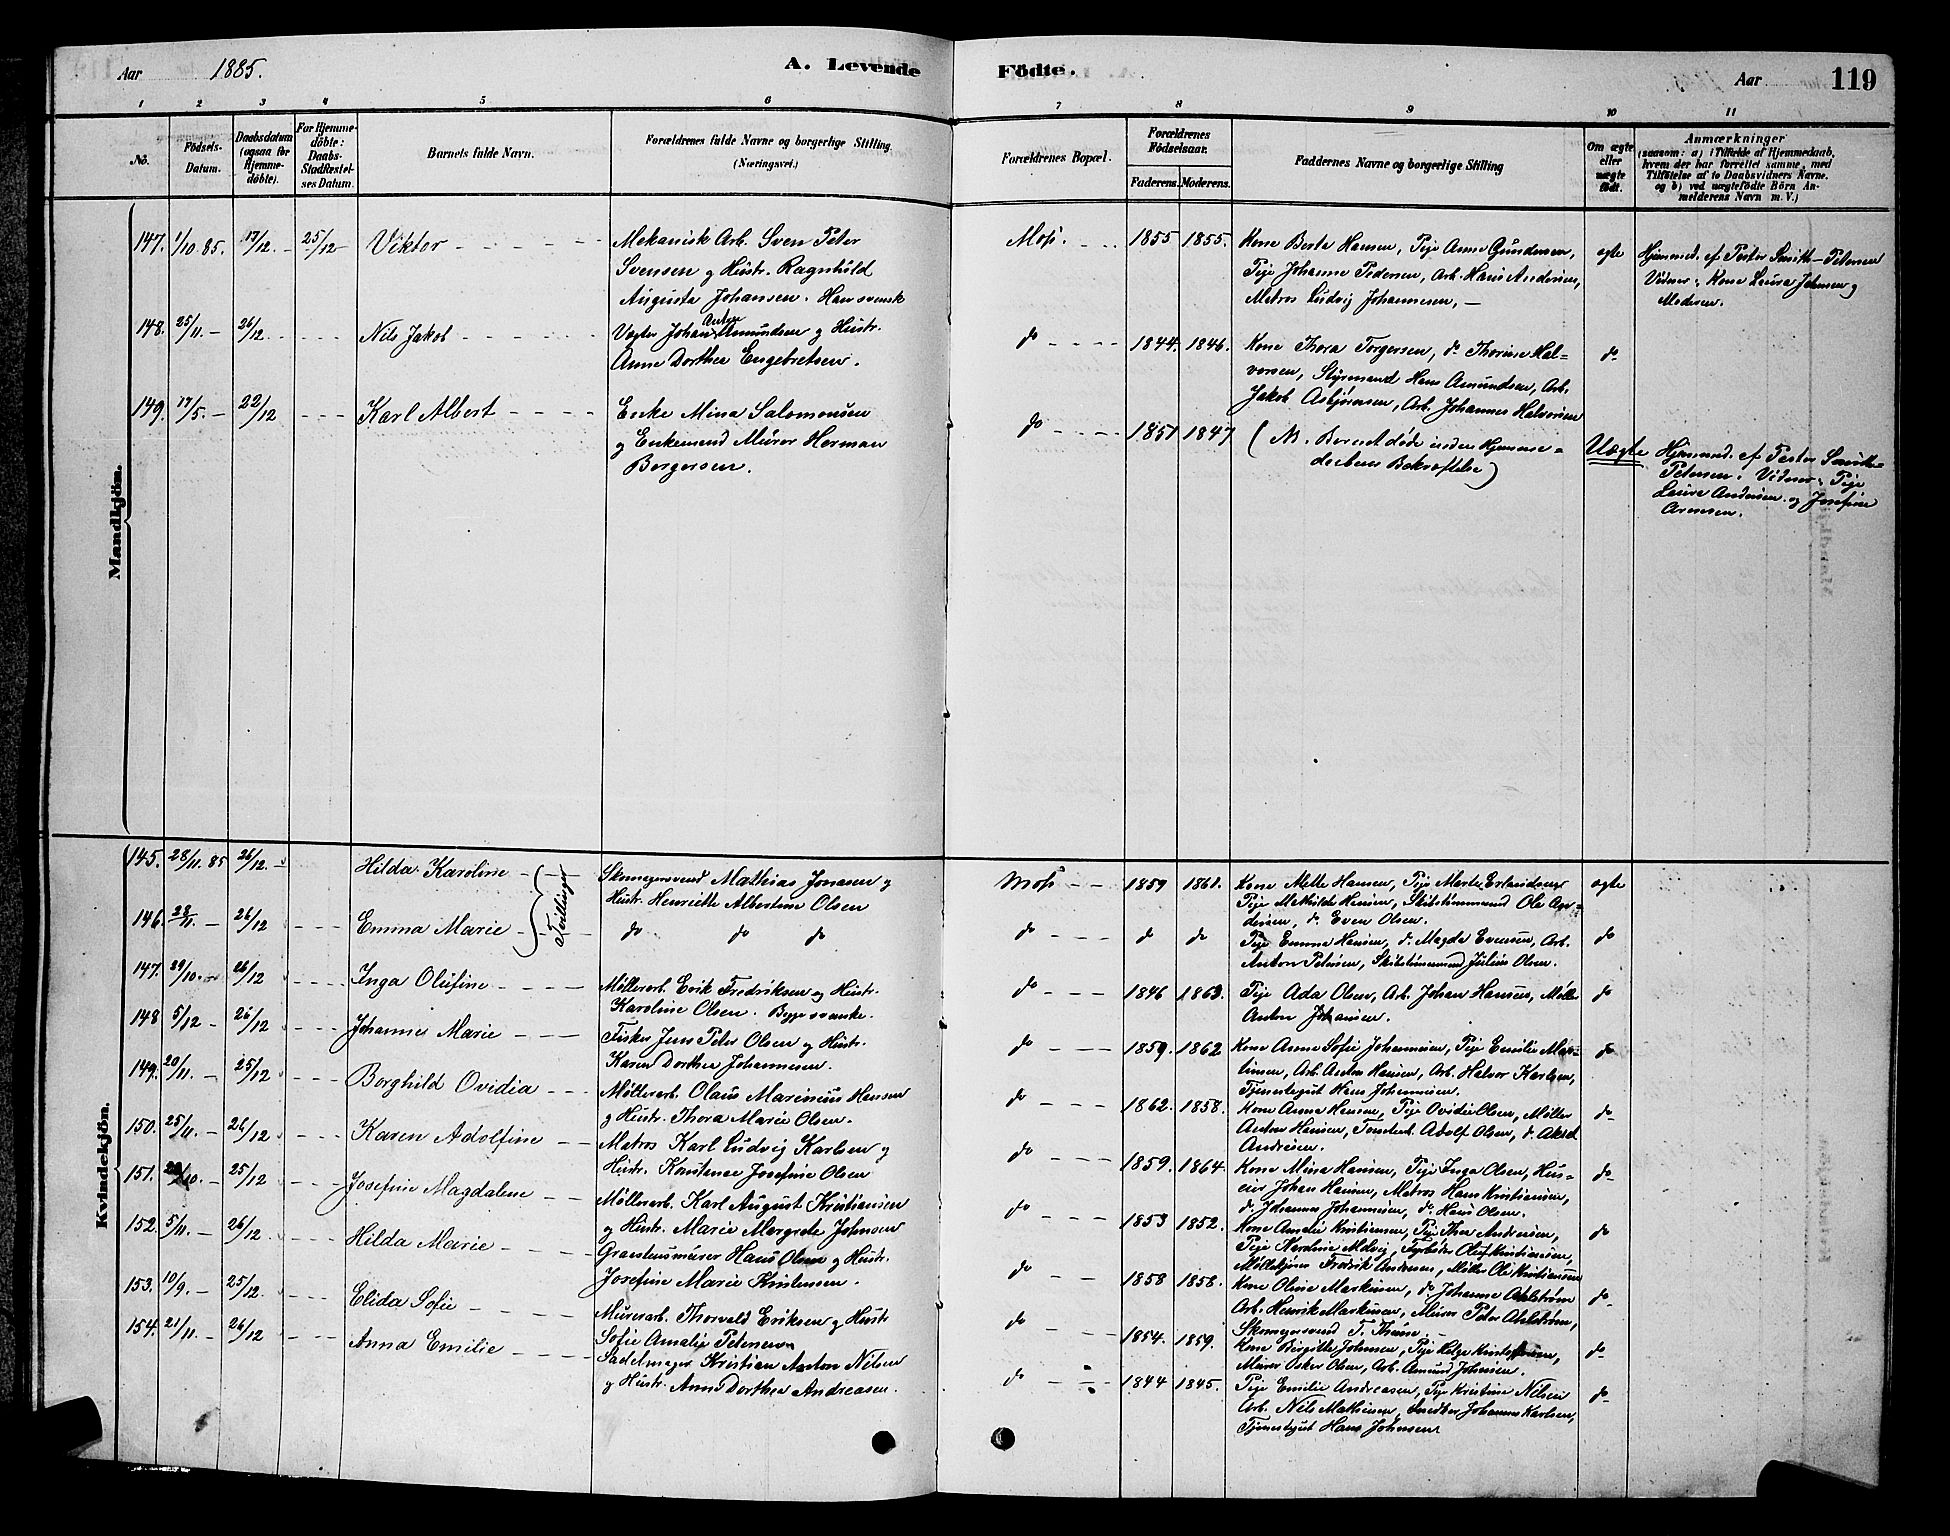 Aar 1885. A. Levende Födte. Aar 119
1 2 3 4 5 6 7 8 9 10 11
No. Födsels-Datum. Daabsdatum (ogsaa for Hjemme-döbte). For Hjemme-döbte: Daabs-Stadfæstel-ses Datum. Barnets fulde Navn. Forældrenes fulde Navne og borgerlige Stilling (Næringsvei.) Forældrenes Bopæl. Forældrenes Födselsaar. Faderens. Moderens. Faddernes Navne og borgerlige Stilling Om ægte eller uægte födt. Anmærkninger
(saasom: a) i Tilfælde af Hjemmedaab,
hvem der har forrettet samme, med
Tilföielse af to Daabsvidners Navne.
og b) ved uægtefödte Börn An-
melderens Navn m. V.)
Mandkjön.
147. 1/10 85. 17/12. 25/12 Viktor Mekanisk Arb. Sven Peter
Svensen og Hustr. Ragnhild
Augusta Johansen. Han svensk
Moss. 1855 1855. Kone Berte Hansen, Pige Anne Gundersen,
Pige Johanne Pedersen, Arb. Hans Andersen,
Matros Ludvig Johannesen, —
ægte Hjemmed. af Pastor Smith-Petersen
Vidner: Kone Laura Johnsen og
Moderen.
148. 25/11. — 26/12 Nils Jakob Vægter Johan Anton Amundsen og Hustr.
Anne Dorthea Engebretsen.
do 1844. 1846. Kone Thora Torgersen, do Thorine Hal-
vorsen, Styrmand Hans Amundsen, Arb.
Jakob Asbjørnsen, Arb. Johannes Halvorsen
do
149. 17/5. — 22/12 Karl Albert Enke Mina Salomonsen
og Enkemand Murer Herman
Borgersen.
do 1851 1847 (NB. Barnet døde inden Hjemme-
daabens Bekræftelse)
Uægte Hjemmed. af Pastor Smith-
Petersen. Vidner: Pige
Laura Andersen og Josefine
Arnesen.
Kvindekjön.
145. 28/11. 85 26/12. Hilda Karoline Tvillinger Skomagersvend Mathias Jonasen og
Hustr. Henriette Albertine Olsen
Moss 1859 1861. Kone Mette Hansen, Pige Marte Erlandsen
Pige Mathilde Hansen, Skibstømmermand Ole An-
dersen, do Even Olsen.
ægte
146. 28/11. — 26/12 Emma Marie do do do
do do do Pige Emma Hansen, do Magda Evensen, Arb.
Anton Petersen, Skibstømmermand Julius Olsen.
do
147. 29/10. 26/12 Inga Olufine Møllerarb. Erik Fredriksen og Hustr.
Karoline Olsen. Begge svenske.
do 1846 1863. Pige Ada Olsen, Arb. Johan Hansen, Møller
Anton Johansen.
do
148 5/12 26/12 Johanne Marie Fisker Jens Peter Olsen og Hustr.
Karen Dorthea Johannesen.
do 1859. 1862 Kone Anne Sofie Johannesen, Pige Emilie Mar-
tinsen, Arb. Anton Hansen, Arb. Halvor Karlsen,
Tjenestegut Hans Johannesen.
do
149. 20/11. — 25/12 Borghild Ovidia Møllerarb. Olaus Marinius Hansen
og Hustr. Thora Marie Olsen.
do 1862. 1858. Kone Anna Hansen, Pige Ovidie Olsen, Møller
Anton Hansen, Adolf Olsen, do Aksel
Andresen.
do
150. 25/11. — 26/12 Karen Adolfine Matros Karl Ludvig Karlsen og
Hustr. Konstance Josefine Olsen
do 1859. 1864. Kone Mina Hansen, Pige Inga Olsen, Hus-
eier Johan Hansen, Matros Hans Kristiansen,
do Johannes Johannesen, do Hans Olsen.
do
151. 25/12 Josefine Magdalene Møllerarb. Karl August Kristiansen
og Hustr. Marie Margrete Johnsen
do 1853 1852. Kone Amalie Kristiansen, Pige Thea Andersen,
Pige Karoline Fyrbøder Oluf Kristiansen,
Fredrik Andersen, Møller Ole Kristiansen
do
152. 5/11. — 26/12 Hilda Marie Graastensmurer Hans Olsen og Hustr.
Josefine Marie Kristensen.
do 1858 1858. Kone Oline Markussen, do Johanne Ahlstrøm
Arb. Henrik Markussen, Murer Peter Ahlstrøm,
Skomagersvend T. Thune.
do
153. 10/9. — 25/12 Elida Sofie Murerarb. Thorvald Eriksen og Hustr
Sofie Amalie Petersen
do 1854. 1859. Kone Birgitte Johnsen, Pige Helga Kristoffersen,
Murer Oskar Olsen, Arb. Amund Johnsen.
do
154. 21/11. — 26/12 Anna Emilie Sadelmager Kristian Anton Nilsen
og Hustr. Anne Dorthea Andreasen.
do 1844 1845. Pige Emilie Andreasen, Pige Kristine Nilsen
Arb. Nils Mathisen, Snedker Johannes Karlsen,
Tjenestegut Hans Johnsen
do